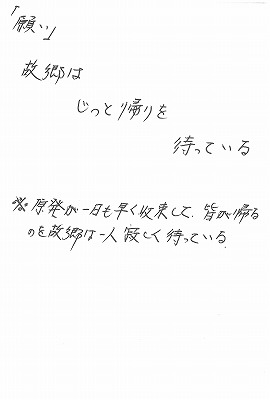 「願い」
故郷は
じっと帰りを
待っている
※原発が一日も早く収束して、皆が帰る
のを故郷は一人寂しく待っている。